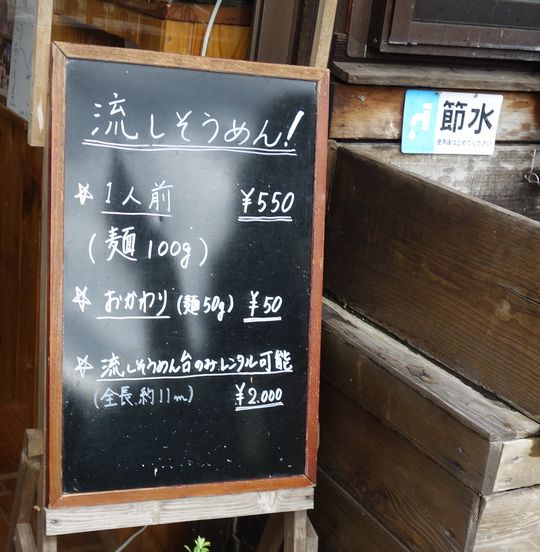 流しそうめん!
☆ 1人前 ¥550
(麺 100g)
☆ おかわり (麺50g) ¥50
☆ 流しそうめん台のみレンタル可能
(全長 約11m) ¥2.000
節水
使用後は止めてください